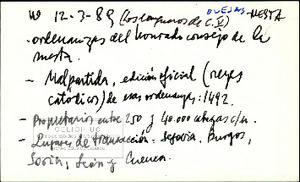 W 12-3-89 (Los borregueros de C. V) OVEJAS-MESTA
- ordenanzas del honrado consejo de la mesta
- Malpartida, edición oficial (reyes católicos) de esas ordenanzas: 1492.
- Propietarios entre 250 y 40.000 cabezas c/u.
- Lugares de transacción: Segovia, Burgos, Soria, León y Cuenca.